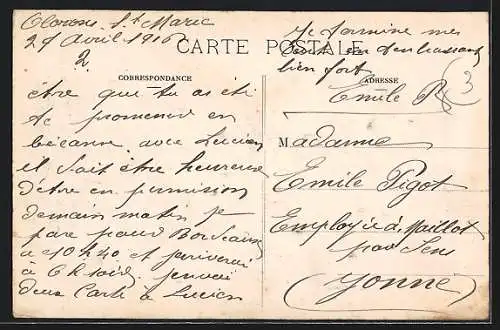 Oloron Ste Marie
29 Avril 1916
2
CARTE POSTALE
CORRESPONDANCE
être que tu as été
te promener en
bécanne avec Lucien
il doit être heureuse
d'être en permission
demain matin je
pare pour Bordeaux
a 10 h 40 et j'ariverai
à 6 h soir j'envoi
deux Carte a Lucien
Je termine mes
tout en t'embrassant
bien fort
ADRESSE
Emile P
3
Madamme
Emile Pigot
Employée à Maillot
par Sens
(Yonne)